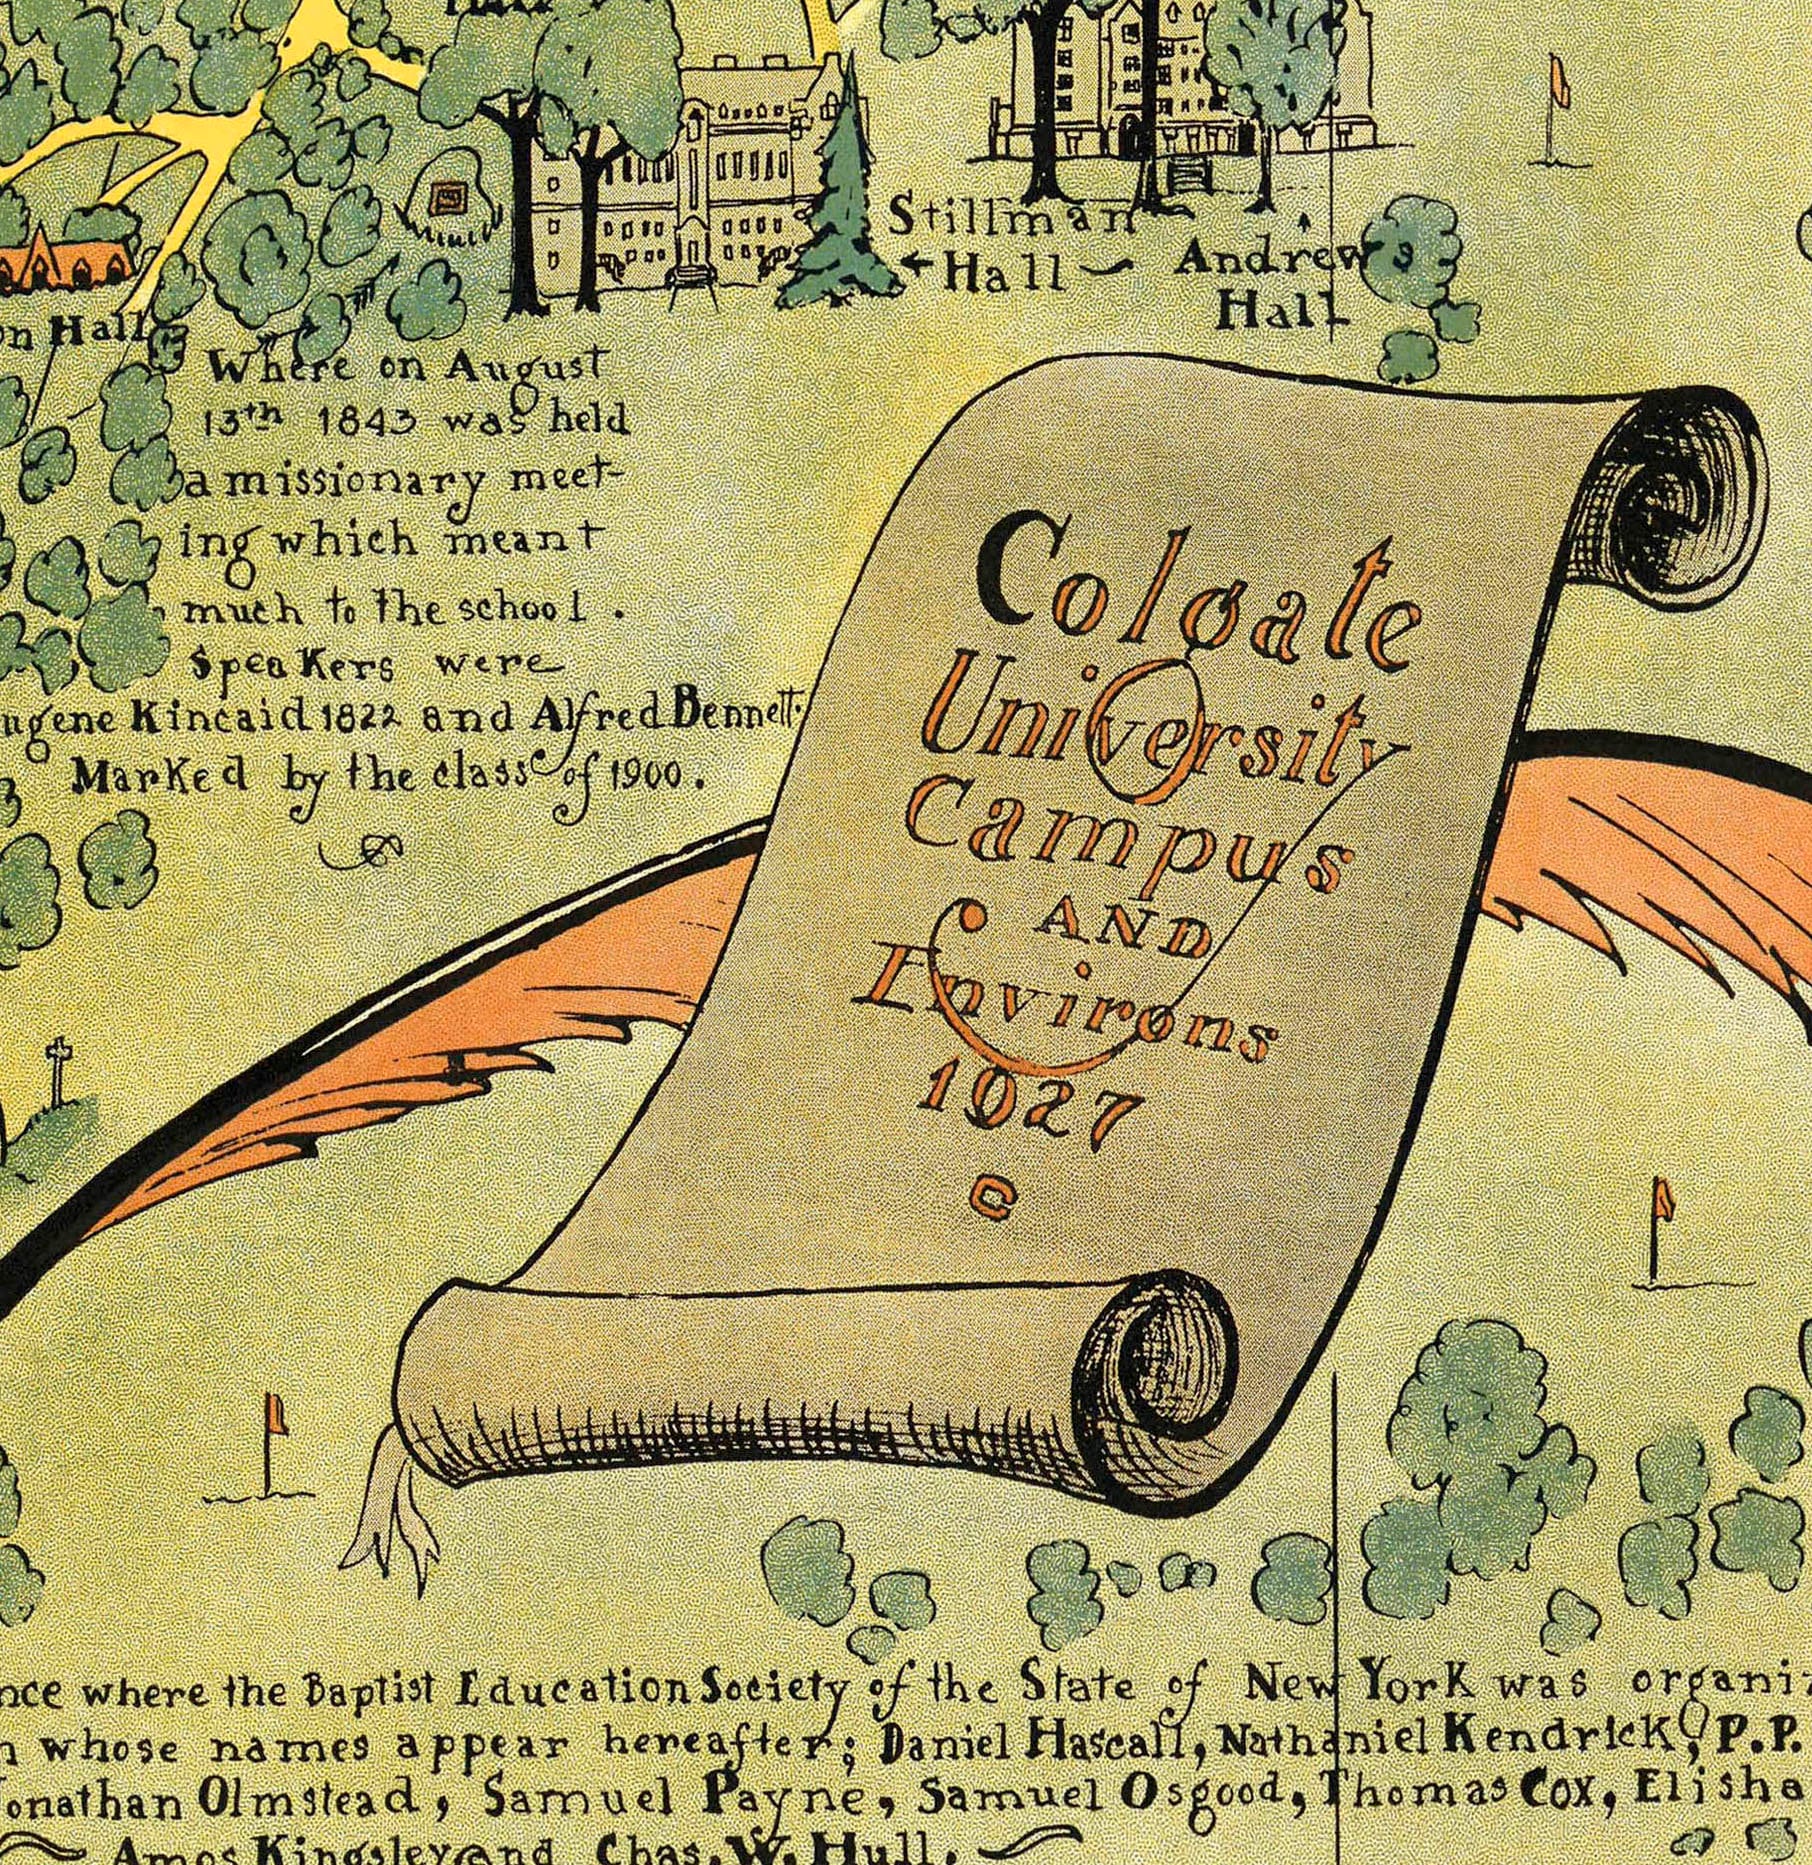 Stillman
Hall
Andrews
Hall
Hall
Where on August
13th 1843 was held
a missionary meet-
ing which meant
much to the school.
Speakers were
ugene Kincaid 1822 and Alfred Bennett.
Marked by the class of 1900.
Colgate
University
Campus
AND
Environs
1927
C
nce where the Baptist Education Society of the State of New York was organi
whose names appear hereafter; Daniel Hascall, Nathaniel Kendrick, P.P.
onathan Olmstead, Samuel Payne, Samuel Osgood, Thomas Cox, Elisha
Amos Kingsley and Chas. W. Hull.